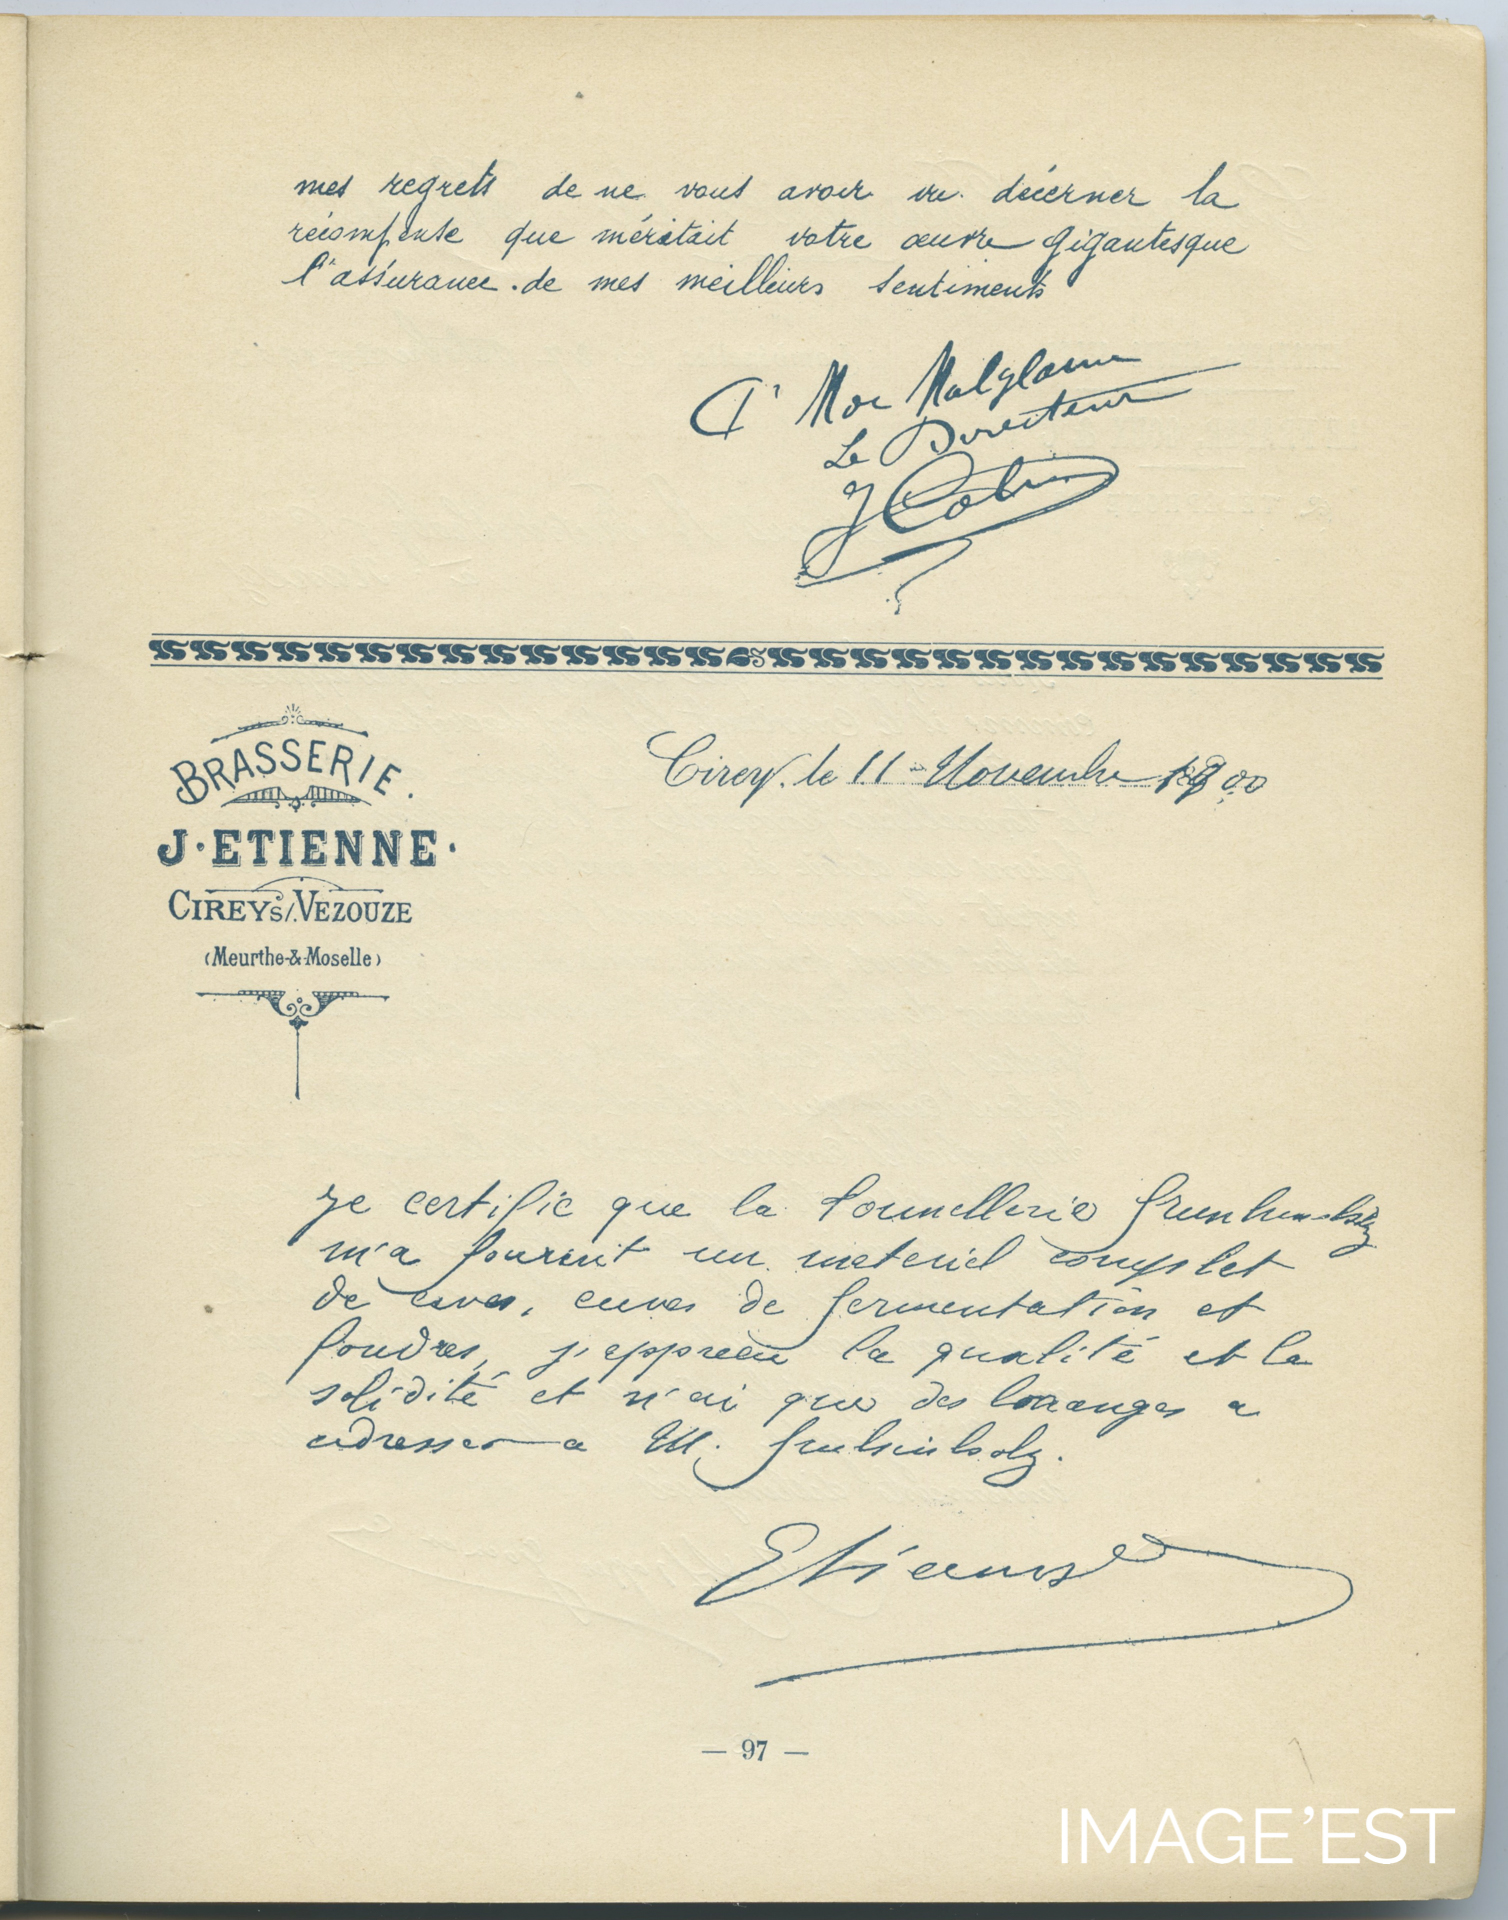 mes regrets de ne vous avoir vu décerner la
récompense que méritait votre œuvre gigantesque
l'assurance de mes meilleurs sentiments
Le Directeur
BRASSERIE.
J. ETIENNE.
CIREY S/. VEZOUZE
(Meurthe-&-Moselle)
Cirey, le 11 Novembre 1900
Je certifie que la Tonnellerie
m'a fournit un materiel complet
de cuves, cuves de fermentation et
foudres, j'apprecie la qualité et la
solidité et n'ai que des louanges a
adresser a M.
Etienne
— 97 —
IMAGE'EST